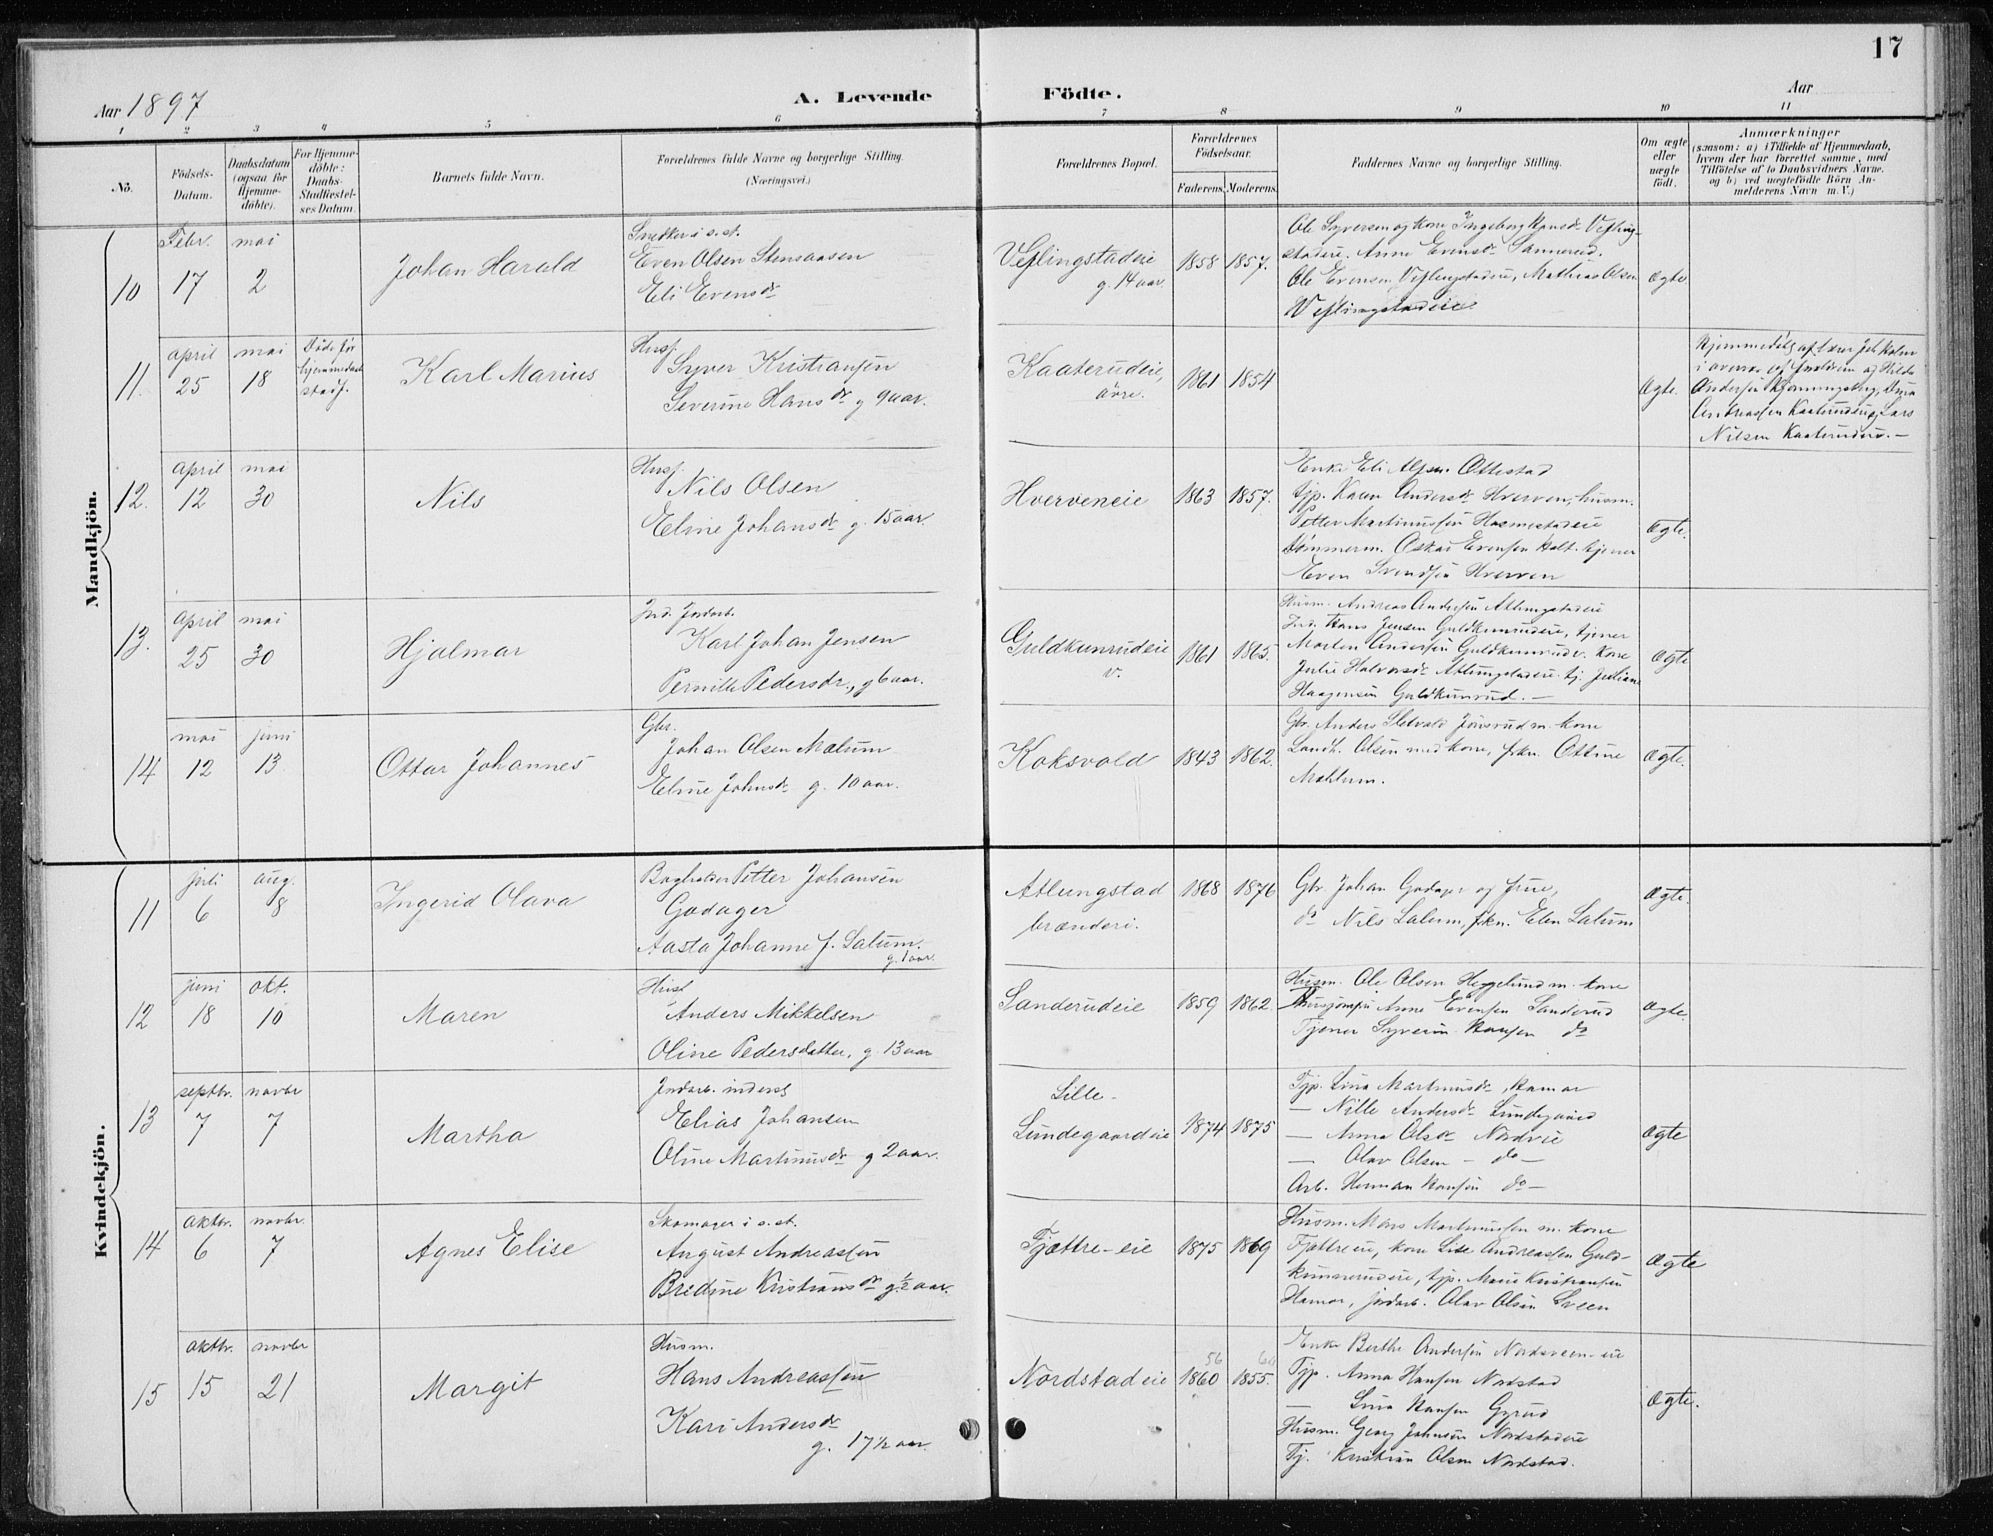 17
Aar 1897
A. Levende
Födte.
Aar
1 2 3 4 5 6 7 8 9 10 11
Nö.
Födsels-Datum.
Daabsdatum (ogsaa for Hjemmedöbte).
For Hjemmedöbte: Daabs-Stadfæstelses Datum.
Barnets fulde Navn.
Forældrenes fulde Navne og borgerlige Stilling.
(Næringsvei.)
Forældrenes Bopæl.
Forældrenes Födselsaar.
Faderens. Moderens.
Faddernes Navne og borgerlige Stilling.
Om ægte eller uægte födt.
Anmærkninger
(saasom: a) i Tilfælde af Hjemmedaab, hvem der har forrettet samme, med Tilföielse af to Daabsvidners Navne, og b) ved uægtefödte Börn Anmelderens Navn m. V.)
Mandkjön.
10
Febr. 17
mai 2
Johan Harald
Snedker i s. st.
Even Olsen Stensaasen
Eli Evensdr
Veflingstadeie
g. 14 aar.
1858 1857.
Ole Syversen og kone Ingeborg Hansdr Vefling-
stadeie. Anne Evensdr Sannerud.
Ole Evensen Veflingstadeie, Mathias Olsen
Veflingstadeie
ægte
11.
april 25
mai 18
Döde för
hjemmedaab
stadf.
Karl Marius
Husf.
Syver Kristiansen
Severine Hansdr g 9 aar.
Kaaterudeie,
övre.
1861 1854
Ægte.
Nilsen Kaaterudeie.-
12.
april 12
mai 30
Nils
Husf.
Nils Olsen
Eline Johansdr g. 15 aar.
Hverveneie
1863 1857.
Enke Eli Alfsen Ottestad
tjp. Karen Andersdr Hverven, husm.
Petter Martinussen Hosmestadeie
tömmerm. Oskar Evensen Holt. tjener
Even Svendsen Hverven
ægte.
13.
april 25
mai 30
Hjalmar
Ind. Jordarb.
Karl Johan Jensen
Pernille Pedersdr., g 6 aar.
Guldkunrudeie
v.
1861 1865.
Husm. Andreas Andersen Atlungstadeie
Ind. Hans Jensen Guldkunrudeie, tjener
Morten Andersen Guldkunrudv. Kone
Julie Halvorsdr Atlungstadeie. tj. Juliane
Haagensen Guldkunrud. -
Ægte
14
mai 12
juni 13
Ottar Johannes
Gbr.
Johan Olsen Mælum
Eline Johnsdr g. 10 aar.
Koksvold
1843 1862.
Gbr. Anders Sletvold Jönsrud m. kone
Landh. Olsen med kone, frkn. Ottine
Mæhlum.
Ægte.
Kvindekjön.
11
juli 6
aug. 8
Ingerid Olava
Bogholder Petter Johansen
Godager
Aasta Johanne f. Salum.
g. 1 aar.
Atlungstad
brænderi.
1868 1876
Gbr. Johan Godager og frue,
do Nils Salum, frkn. Elen Salum
Ægte.
12
juni 18
okt. 10
Maren
Husf
Anders Mikkelsen
Oline Pedersdatter, g. 13 aar
Sanderudeie
1859 1862.
Husm. Ole Olsen Heggelund m. kone
Husjomfru Anne Evensen Sanderud
Tjener Syverin Hansen do
Ægte.
13
septbr. 7
novbr 7
Martha
Jordarb. inderst
Elias Johansen
Oline Martinusdr g 2 aar.
Lille-
Lundegaardeie
1874 1875
Tjp. Lina Martinusdr, Hamar
— Nille Andersdr Lundegaard
— Anna Olsdr Nordvie
— Olav Olsen - do -
Arb. Herman Hansen do -
Ægte
14
oktbr. 6
novbr. 7
Agnes Elise
Skomager i s. st.
August Andreassen
Bredine Kristiansdr g. ½ aar.
Fjættre-eie
1875 1869
Husm. Mons Martinussen m. kone
Fjættreeie, kone Lise Andreassen Guld-
kunnerudeie, tjp. Marie Kristiansen
Hamar, jordarb. Olav Olsen Sveen
Ægte
15
oktbr. 15
novbr 21
Margit
Husm.
Hans Andreassen
Kari Andersdr
g. 17½ aar.
Nordstadeie
56
1860 1855.
Enke Berthe Andersen Nordsveen-eie
Tjp. Anna Hansen Nordstad
— Lina Hansen Gyrud
Husm. Georg Johnsen Nordstadeie
Tj. Kristian Olsen Nordstad.
Ægte.